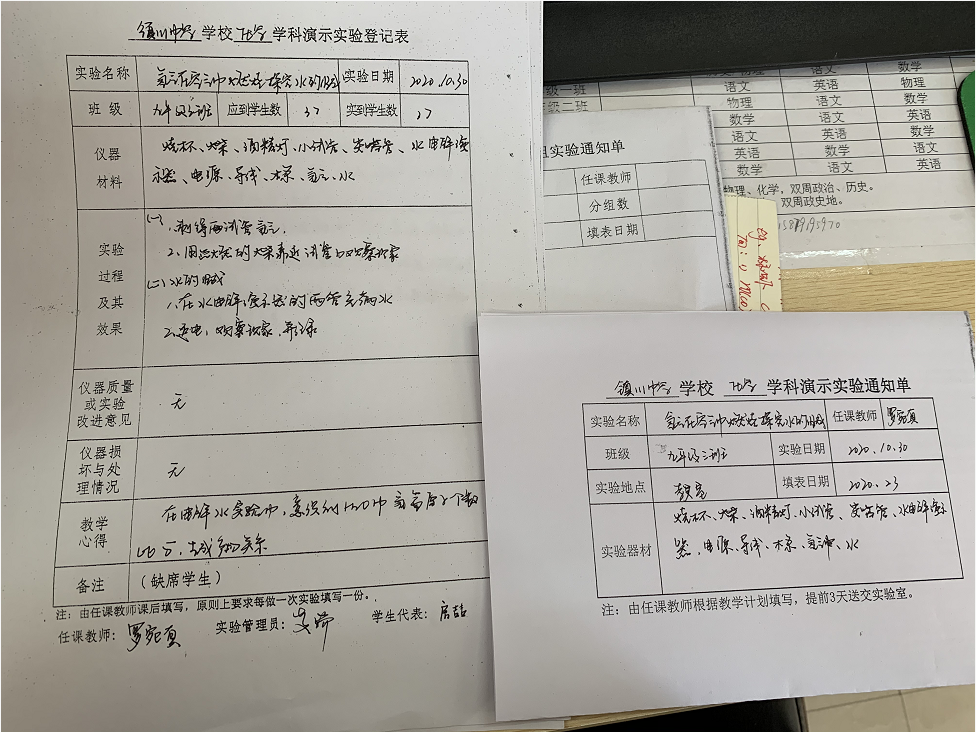 镇川中学 学校 化学 学科演示实验登记表
实验名称 氢气在空气中燃烧 探究水的组成 实验日期 2020.10.30
班 级 九年级三班 应到学生数 37 实到学生数 37
仪器
材料
烧杯、火柴、酒精灯、小试管、尖嘴管、水电解演
示器、电源、导线、木条、氢气、水
实验
过程
及其
效果
(一)
1、制得两试管氢气.
2、用点燃的火柴靠近试管口观察现象
(二)水的组成
1、在水电解演示器的两管充满水
2、通电,观察现象,并记录
仪器质量
或实验
改进意见
无
仪器损
坏与处
理情况
无
教学
心得
在电解水实验中,
备注 (缺席学生)
注:由任课教师课后填写,原则上要求每做一次实验填写一份。
任课教师: 罗宛页 实验管理员: 学生代表:
组实验通知单
任课教师
分组数
填表日期
语文 数学
级一班 语文 物理
级二班 物理 语文 数学
数学 语文 英语
语文 英语 数学
英语 数学 语文
数学 语文 英语
物理、化学,双周政治、历史。
双周政史地。
镇川中学 学校 化学 学科演示实验通知单
实验名称 氢气在空气中燃烧 探究水的组成 任课教师 罗宛页
班级 九年级三班 实验日期 2020.10.30
实验地点 教室 填表日期 2020.23
实验器材
烧杯、火柴、酒精灯、小试管、尖嘴管、水电解演示
器、电源、导线、木条、氢气、水
注:由任课教师根据教学计划填写,提前3天送交实验室。